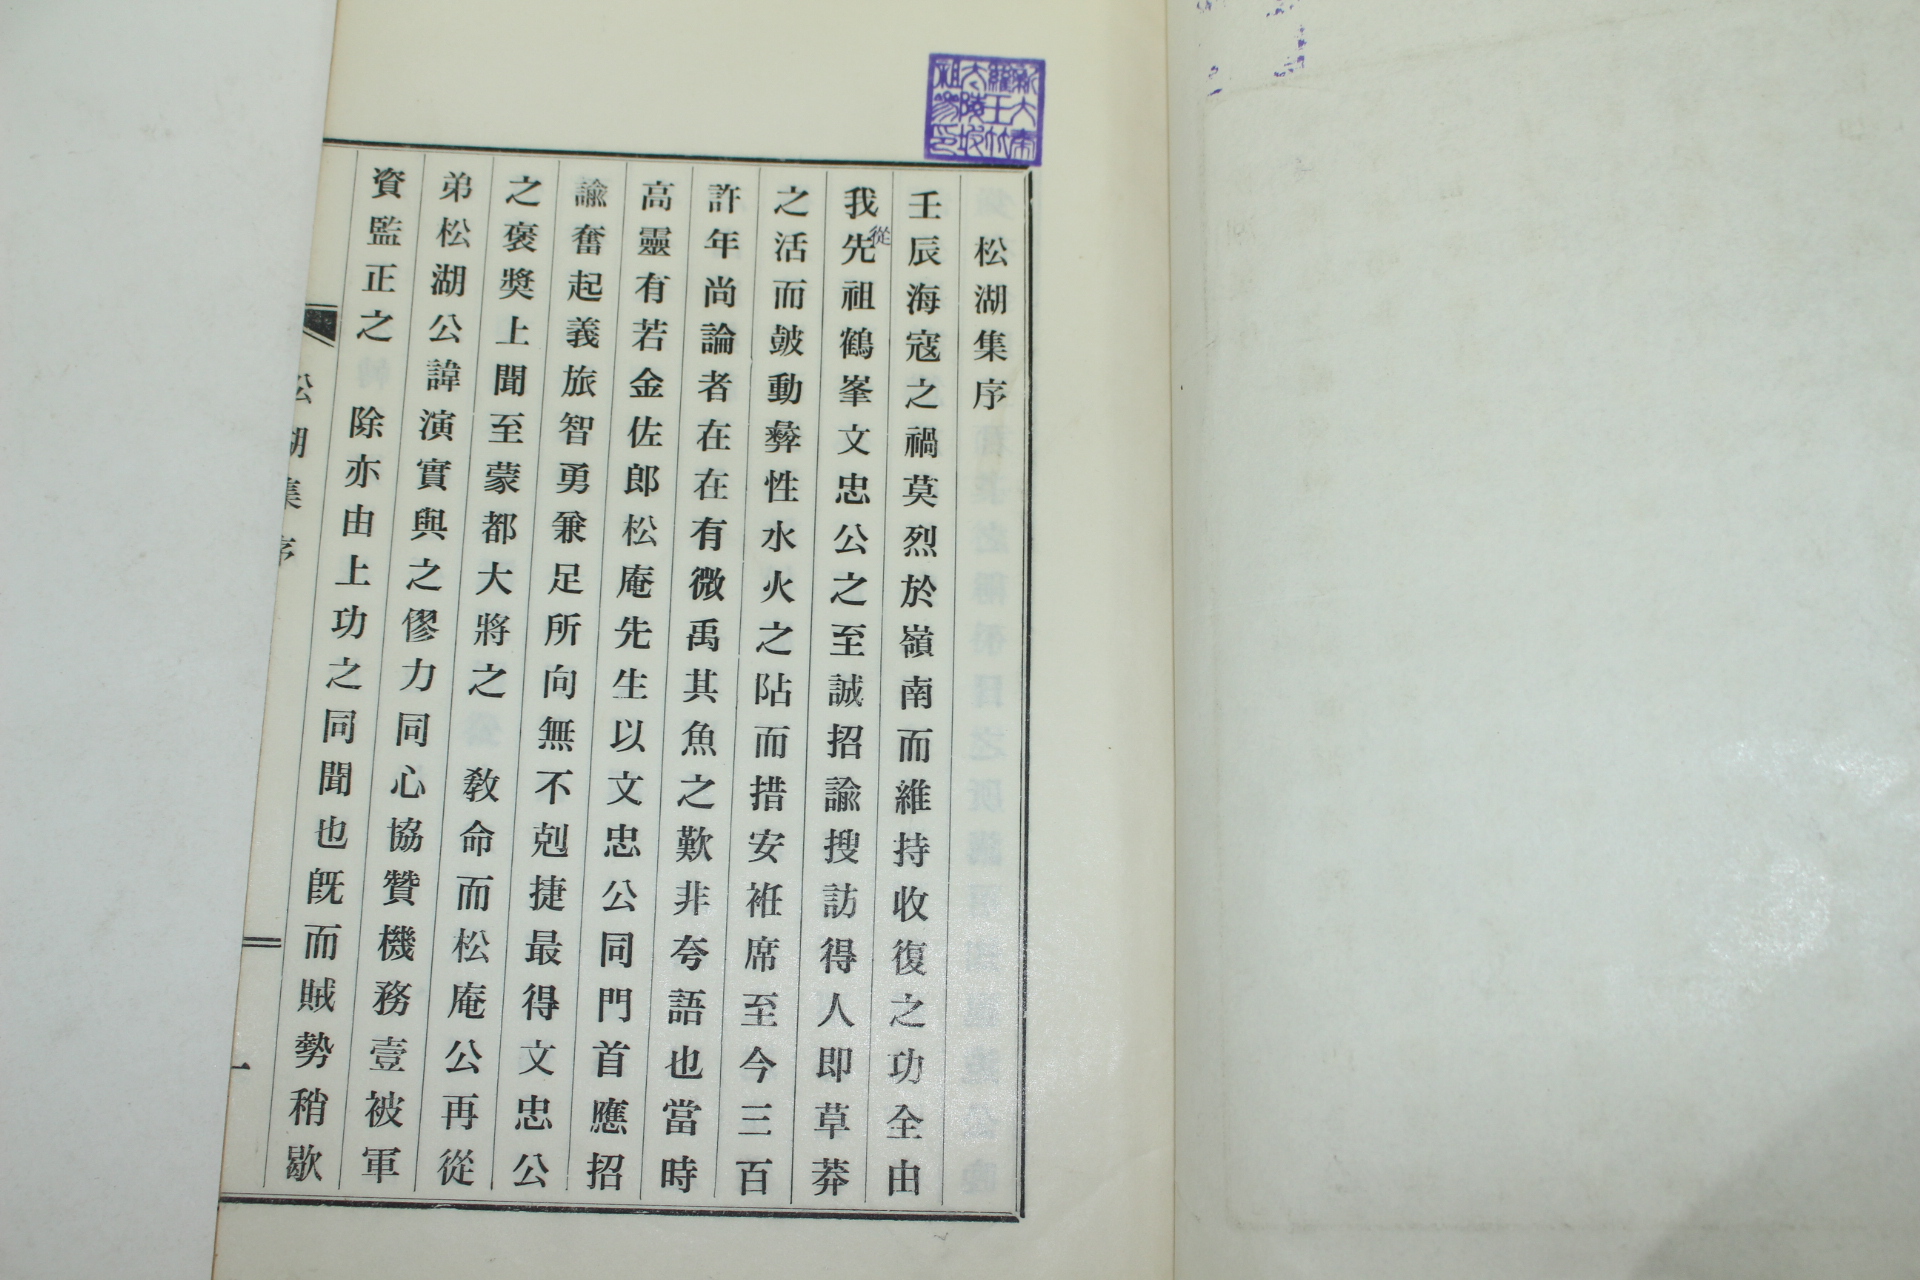 松湖集序
壬辰海寇之禍莫烈於嶺南而維持收復之功全由
我從先祖鶴峯文忠公之至誠招諭搜訪得人即草莽
之活而皷動彛性水火之阽而措安袵席至今三百
許年尚論者在在有微禹其魚之歎非夸語也當時
高靈有若金佐郎松庵先生以文忠公同門首應招
諭奮起義旅智勇兼足所向無不剋捷最得文忠公
之褒奬上聞至蒙都大將之 教命而松庵公再從
弟松湖公諱演實與之僇力同心協贊機務壹被軍
資監正之 除亦由上功之同聞也旣而賊勢稍歇
松湖集序
一